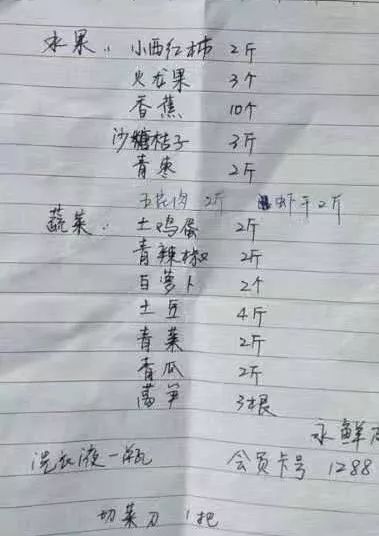 水果：小西红柿 2斤
火龙果 3个
香蕉 10个
沙糖桔子 3斤
青枣 2斤
五花肉 2斤 虾干2斤
蔬菜：土鸡蛋 2斤
青辣椒 2斤
白萝卜 2个
土豆 4斤
青菜 2斤
青瓜 2斤
莴笋 3根
永鲜
洗衣液一瓶 会员卡号 1288
切菜刀 1把